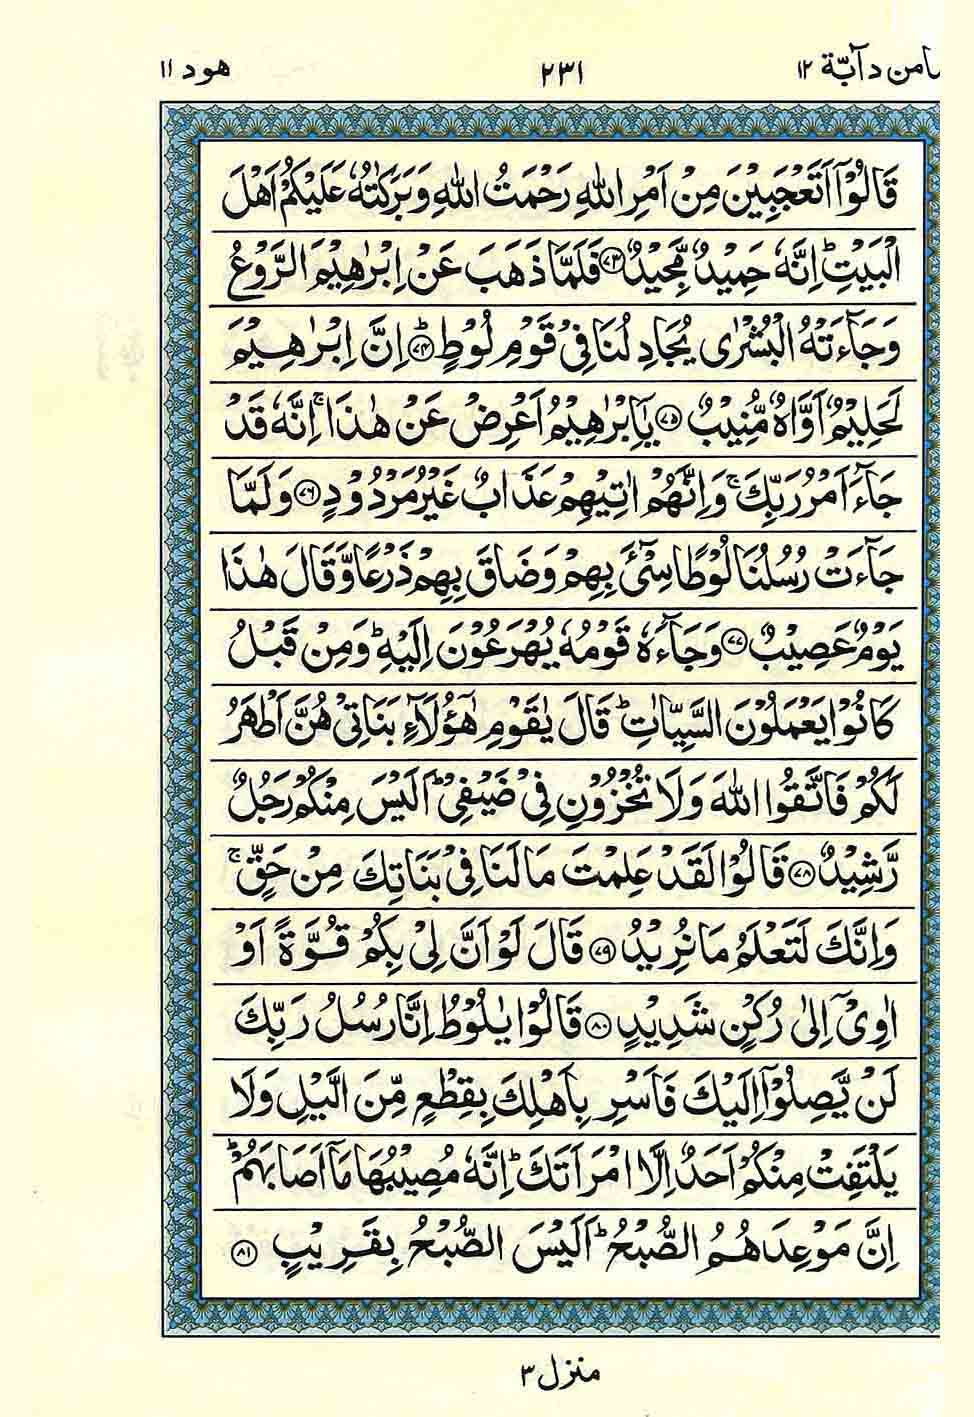 ـامن دآبّة ۱۲
۲۳۱
هود ۱۱
قَالُوْۤا اَتَعْجَبِيْنَ مِنْ اَمْرِ اللّٰهِ رَحْمَتُ اللّٰهِ وَبَرَكٰتُهٗ عَلَيْكُمْ اَهْلَ
الْبَيْتِؕ اِنَّهٗ حَمِيْدٌ مَّجِيْدٌ ۝۷۳ فَلَمَّا ذَهَبَ عَنْ اِبْرٰهِيْمَ الرَّوْعُ
وَجَآءَتْهُ الْبُشْرٰى يُجَادِلُنَا فِىْ قَوْمِ لُوْطٍؕ ۝۷۴ اِنَّ اِبْرٰهِيْمَ
لَحَلِيْمٌ اَوَّاهٌ مُّنِيْبٌ ۝۷۵ يٰۤاِبْرٰهِيْمُ اَعْرِضْ عَنْ هٰذَاۚ اِنَّهٗ قَدْ
جَآءَ اَمْرُ رَبِّكَۚ وَاِنَّهُمْ اٰتِيْهِمْ عَذَابٌ غَيْرُ مَرْدُوْدٍ ۝۷۶ وَلَمَّا
جَآءَتْ رُسُلُنَا لُوْطًا سِىْٓءَ بِهِمْ وَضَاقَ بِهِمْ ذَرْعًا وَّقَالَ هٰذَا
يَوْمٌ عَصِيْبٌ ۝۷۷ وَجَآءَهٗ قَوْمُهٗ يُهْرَعُوْنَ اِلَيْهِؕ وَمِنْ قَبْلُ
كَانُوْا يَعْمَلُوْنَ السَّيِّاٰتِؕ قَالَ يٰقَوْمِ هٰٓؤُلَآءِ بَنَاتِىْ هُنَّ اَطْهَرُ
لَكُمْ فَاتَّقُوا اللّٰهَ وَلَا تُخْزُوْنِ فِىْ ضَيْفِىْؕ اَلَيْسَ مِنْكُمْ رَجُلٌ
رَّشِيْدٌ ۝۷۸ قَالُوْا لَقَدْ عَلِمْتَ مَا لَنَا فِىْ بَنَاتِكَ مِنْ حَقٍّۚ
وَاِنَّكَ لَتَعْلَمُ مَا نُرِيْدُ ۝۷۹ قَالَ لَوْ اَنَّ لِىْ بِكُمْ قُوَّةً اَوْ
اٰوِىْۤ اِلٰى رُكْنٍ شَدِيْدٍ ۝۸۰ قَالُوْا يٰلُوْطُ اِنَّا رُسُلُ رَبِّكَ
لَنْ يَّصِلُوْۤا اِلَيْكَ فَاَسْرِ بِاَهْلِكَ بِقِطْعٍ مِّنَ الَّيْلِ وَلَا
يَلْتَفِتْ مِنْكُمْ اَحَدٌ اِلَّا امْرَاَتَكَؕ اِنَّهٗ مُصِيْبُهَا مَاۤ اَصَابَهُمْؕ
اِنَّ مَوْعِدَهُمُ الصُّبْحُؕ اَلَيْسَ الصُّبْحُ بِقَرِيْبٍ ۝۸۱
منزل ۳